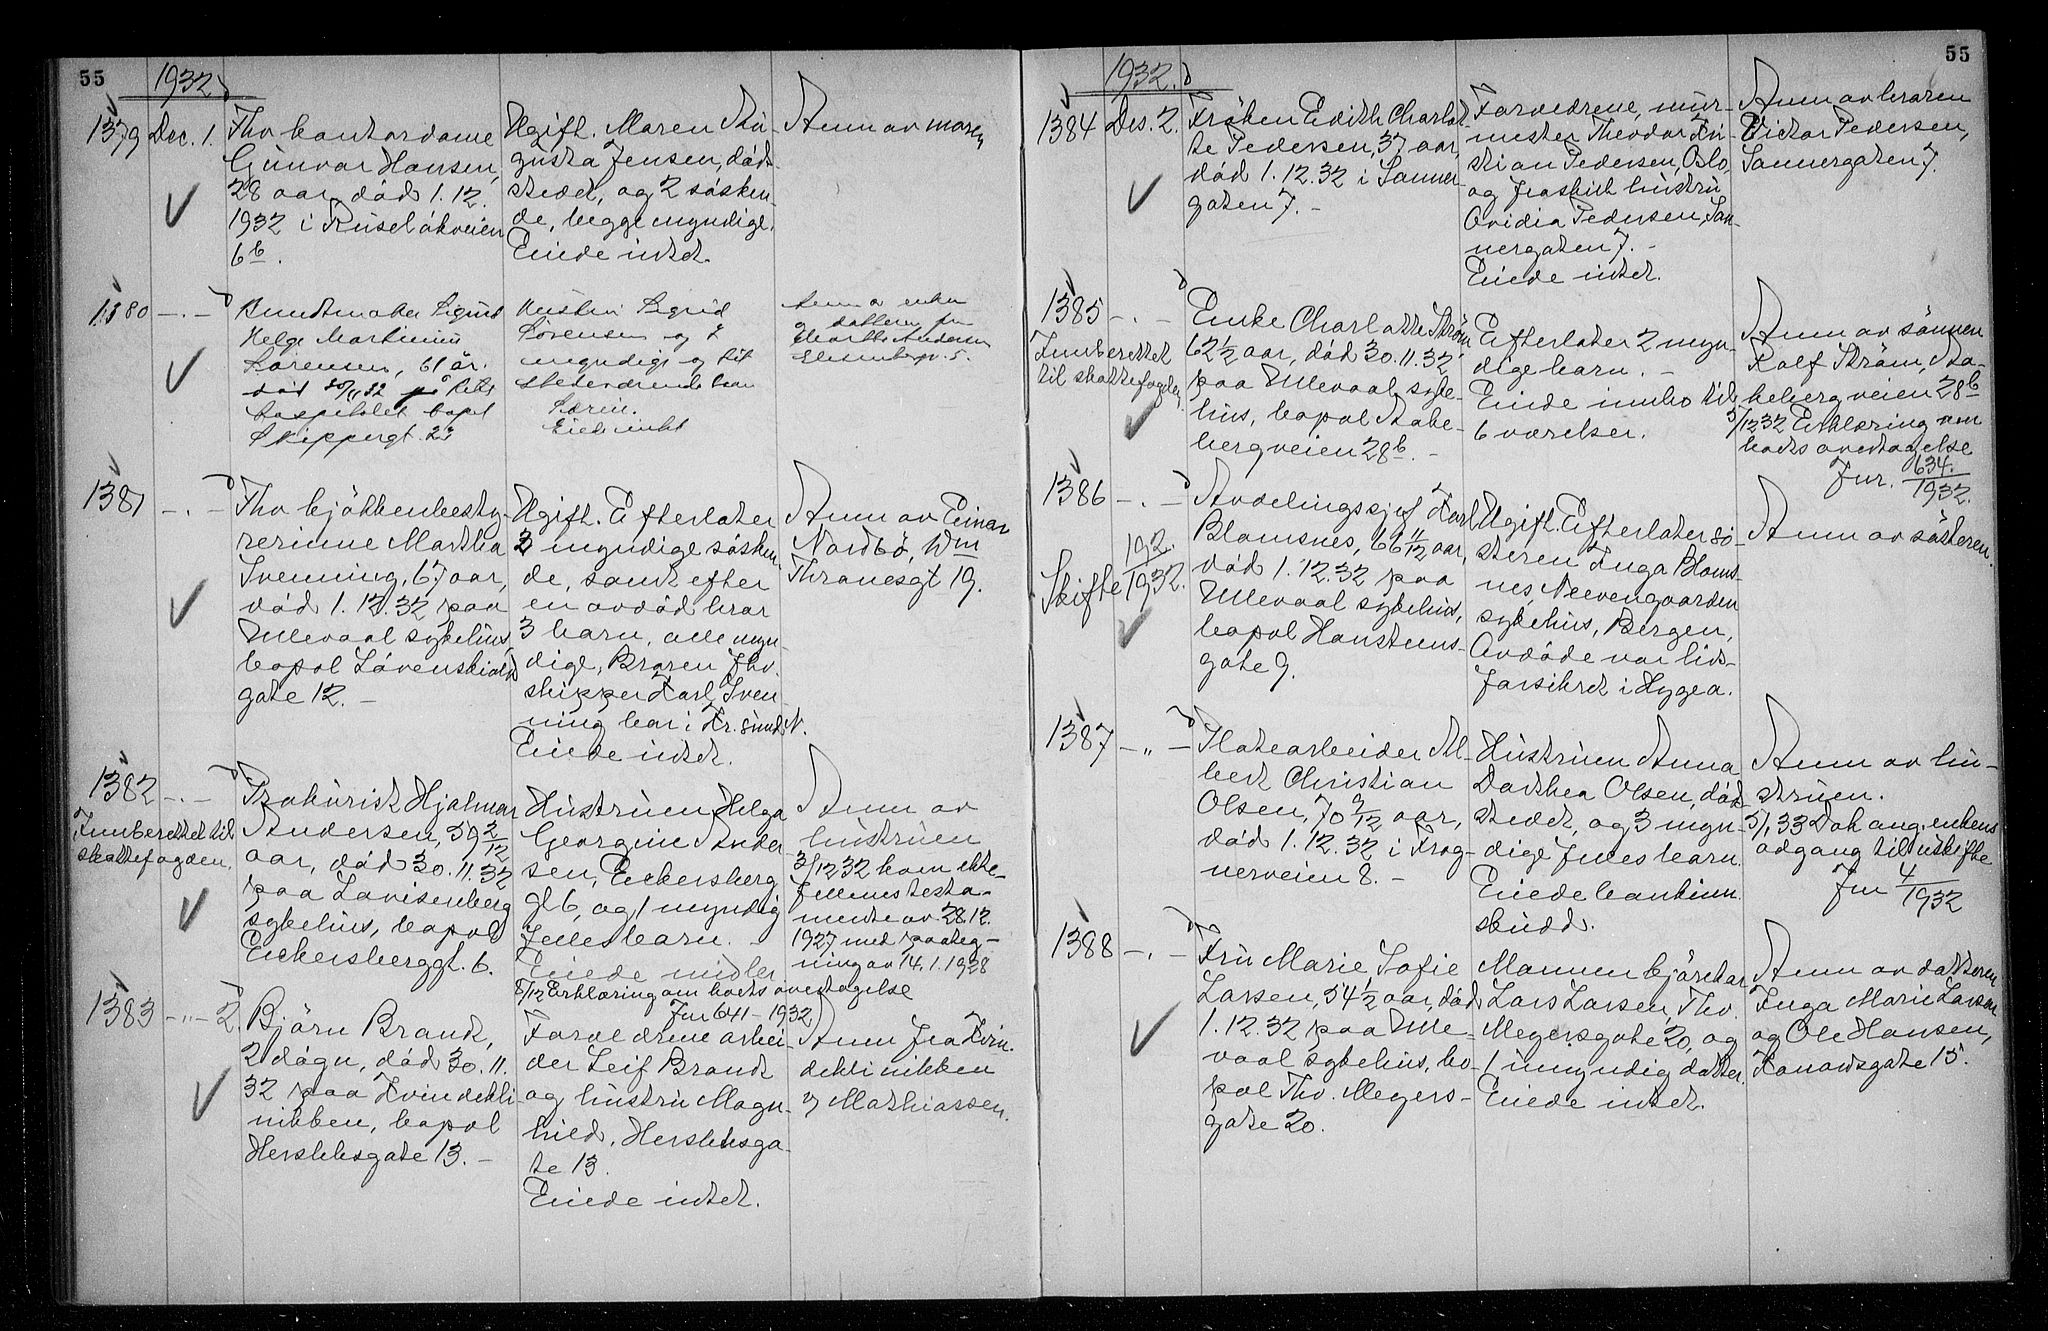 55
1932
1379 Dec. 1.
Fhv kontordame
Gunvor Hansen,
28 aar, död 1.12.
1932 i Ruselökveien
6b.
Ugift. Moren Au-
gusta Jensen, död-
stedet, og 2 sösken-
de, begge myndige.
Eiede intet.
Anm av moren
1380 -.-
Buntmaker Sigurd
Helge Martinius
Sörensen, 61 år.
död 30/11 32 på Rikshospitalet bopel
Skippergt. 23
Hustru Sigrid
Sörensen og 7
myndige og tilstedeværende barn
Eide intet
Anm av enken
datteren fru
Martha Andersen
1381 -.-
Fhv kjökkenbesty-
rerinne Martha
Svenning, 67 aar,
död 1.12.32 paa
Ullevaal sykehus,
bopel Lövenskiolds
gate 12. -
Ugift. Efterlater
3 myndige sösken-
de, samt efter
en avdöd bror
3 barn, alle myn-
dige, Broren fhv.
skipper Karl Sven-
ning bor i Kr.sund N.
Eiede intet.
Anm av Einar
Nordbö, Wm
Thranesgt 19.
1382 -.-
Innberettet til
skattefogden.
Prokurist Hjalmar
Andersen, 59 2/12
aar, död 30.11.32
paa Lovisenberg
sykehus, bopel
Eckersberggt. 6.
Hustruen Helga
Georgine Ander-
sen, Eckersberg
gt 6, og 1 myndig
felles barn. -
Eiede midler
Anm av
hustruen
3/12 32 kom ekte-
fellenes testa-
mente av 28.12.
1927 med paateg-
ning av 14.1.1928
8/12 Erklæring om boets overtagelse
Jnr 641 - 1932
1383 -.,- 2.
Björn Brandt,
2 dögn, död 30.11.
32 paa Kvindekli-
nikken, bopel
Herslebsgate 13. -
Forældrene arbei-
der Leif Brandt
og hustru Magn-
hild, Herslebsga-
te 13.
Eiede intet.
Anm fra Kvin-
deklinikken
v/ Mathiassen.
55
1932.
1384 Des. 2.
Fröken Edith Charlot-
te Pedersen, 37 aar,
död 1.12.32 i Sanner-
gaten 7. -
Forældrene, mur-
mester Theodor Kri-
stian Pedersen, Oslo,
og fraskilt hustru
Ovidia Pedersen, San-
nergaten 7. -
Eiede intet.
Anm av broren
Victor Pedersen,
Sannergaten 7.
1385 -.-
Innberettet
til skattefogden.
Enke Charlotte Ström
62 1/2 aar, död 30.11.32
paa Ullevaal syke-
hus, bopel Stake-
bergveien 28b. -
Efterlater 2 myn-
dige barn. -
Eiede innbo til
6 værelser.
Anm av sönnen
Rolf Ström, Sta-
kebergveien 28b
5/12 32 Erklæring om
boets overtagelse
Jnr. 634./1932.
1386 -.-
Skifte 192./1932.
Avdelingssjef Karl
Blomsnes, 66 11/12 aar,
död 1.12.32 paa
Ullevaal sykehus,
bopel Hansteens-
gate 9.
Ugift. Efterlater sö-
steren Inga Bloms-
nes, Neevengaarden
sykehus, Bergen.
Avdöde var livs-
forsikret i Hygea.
Anm av sösteren.
1387 -.,-
Platearbeider Al-
bert Christian
Olsen, 70 9/12 aar,
död 1.12.32 i Frog-
nerveien 8. -
Hustruen Anna
Dorthea Olsen, död-
stedet, og 3 myn-
dige felles barn.
Eiede bankinn-
skudd.
Anm av hu-
struen.
5/1 33 Dok ang. enkens
adgang til uskifte
Jnr 4/1932
1388 -.-
Fru Marie Sofie
Larsen, 54 1/2 aar, död
1.12.32 paa Ulle-
vaal sykehus, bo-
pel Thv. Meyers-
gate 20.
Mannen kjörekar
Lars Larsen, Thv.
Meyersgate 20, og
1 umyndig datter.
Eiede intet.
Anm av datteren
Inga Marie Larsen
og Ole Hansen,
Kanonsgate 15.